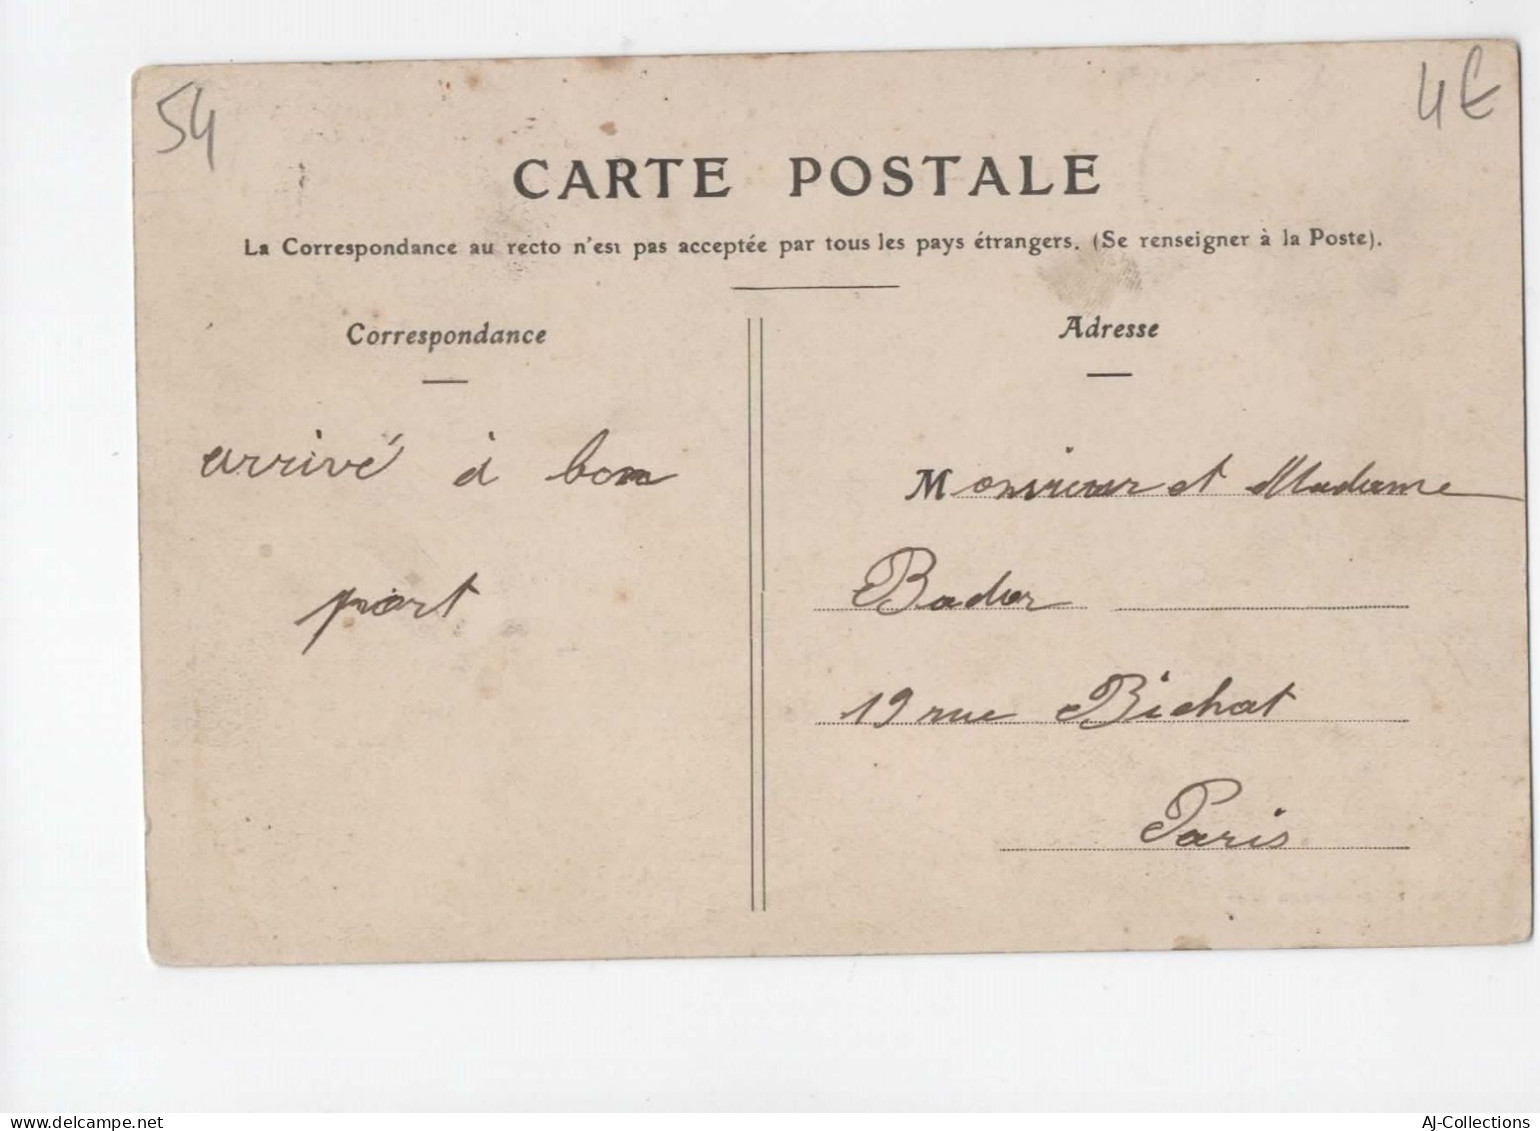 54
4€
CARTE POSTALE
La Correspondance au recto n'est pas acceptée par tous les pays étrangers. (Se renseigner à la Poste).
Correspondance
Adresse
arrivé à bon
port
Monsieur et Madame
Bador
19 rue Bichat
Paris
www.delcampe.net
AJ-Collections